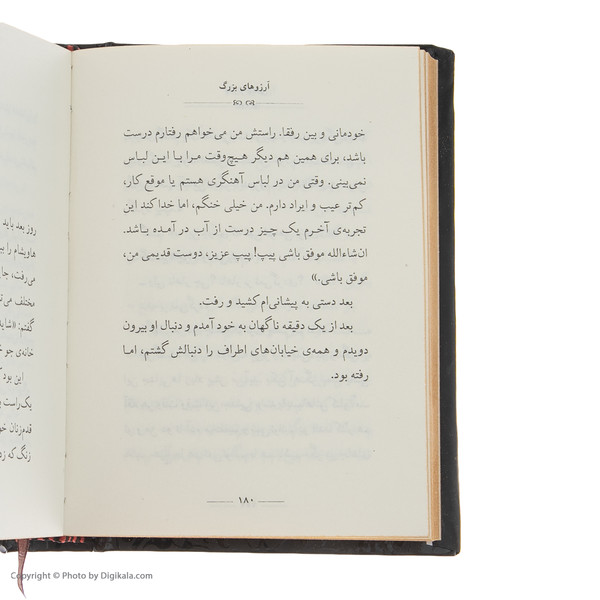 آرزوهای بزرگ
خودمانی و بین رفقا. راستش من می‌خواهم رفتارم درست
باشد، برای همین هم دیگر هیچ‌وقت مرا با این لباس
نمی‌بینی. وقتی من در لباس آهنگری هستم یا موقع کار،
کم‌تر عیب و ایراد دارم. من خیلی خنگم، اما خدا کند این
تجربه‌ی آخرم یک چیز درست از آب در آمده باشد.
ان‌شاءالله موفق باشی پیپ! پیپ عزیز، دوست قدیمی من،
موفق باشی.»
بعد دستی به پیشانی‌ام کشید و رفت.
بعد از یک دقیقه ناگهان به خود آمدم و دنبال او بیرون
دویدم و همه‌ی خیابان‌های اطراف را دنبالش گشتم، اما
رفته بود.
۱۸۰
روز بعد باید
هاویشام را
می‌رفت، جای
مختلف
گفتم: «شاید
خانه‌ی جو
این بود
یک‌راست
قدم‌زنان
زنگ که
Copyright © Photo by Digikala.com